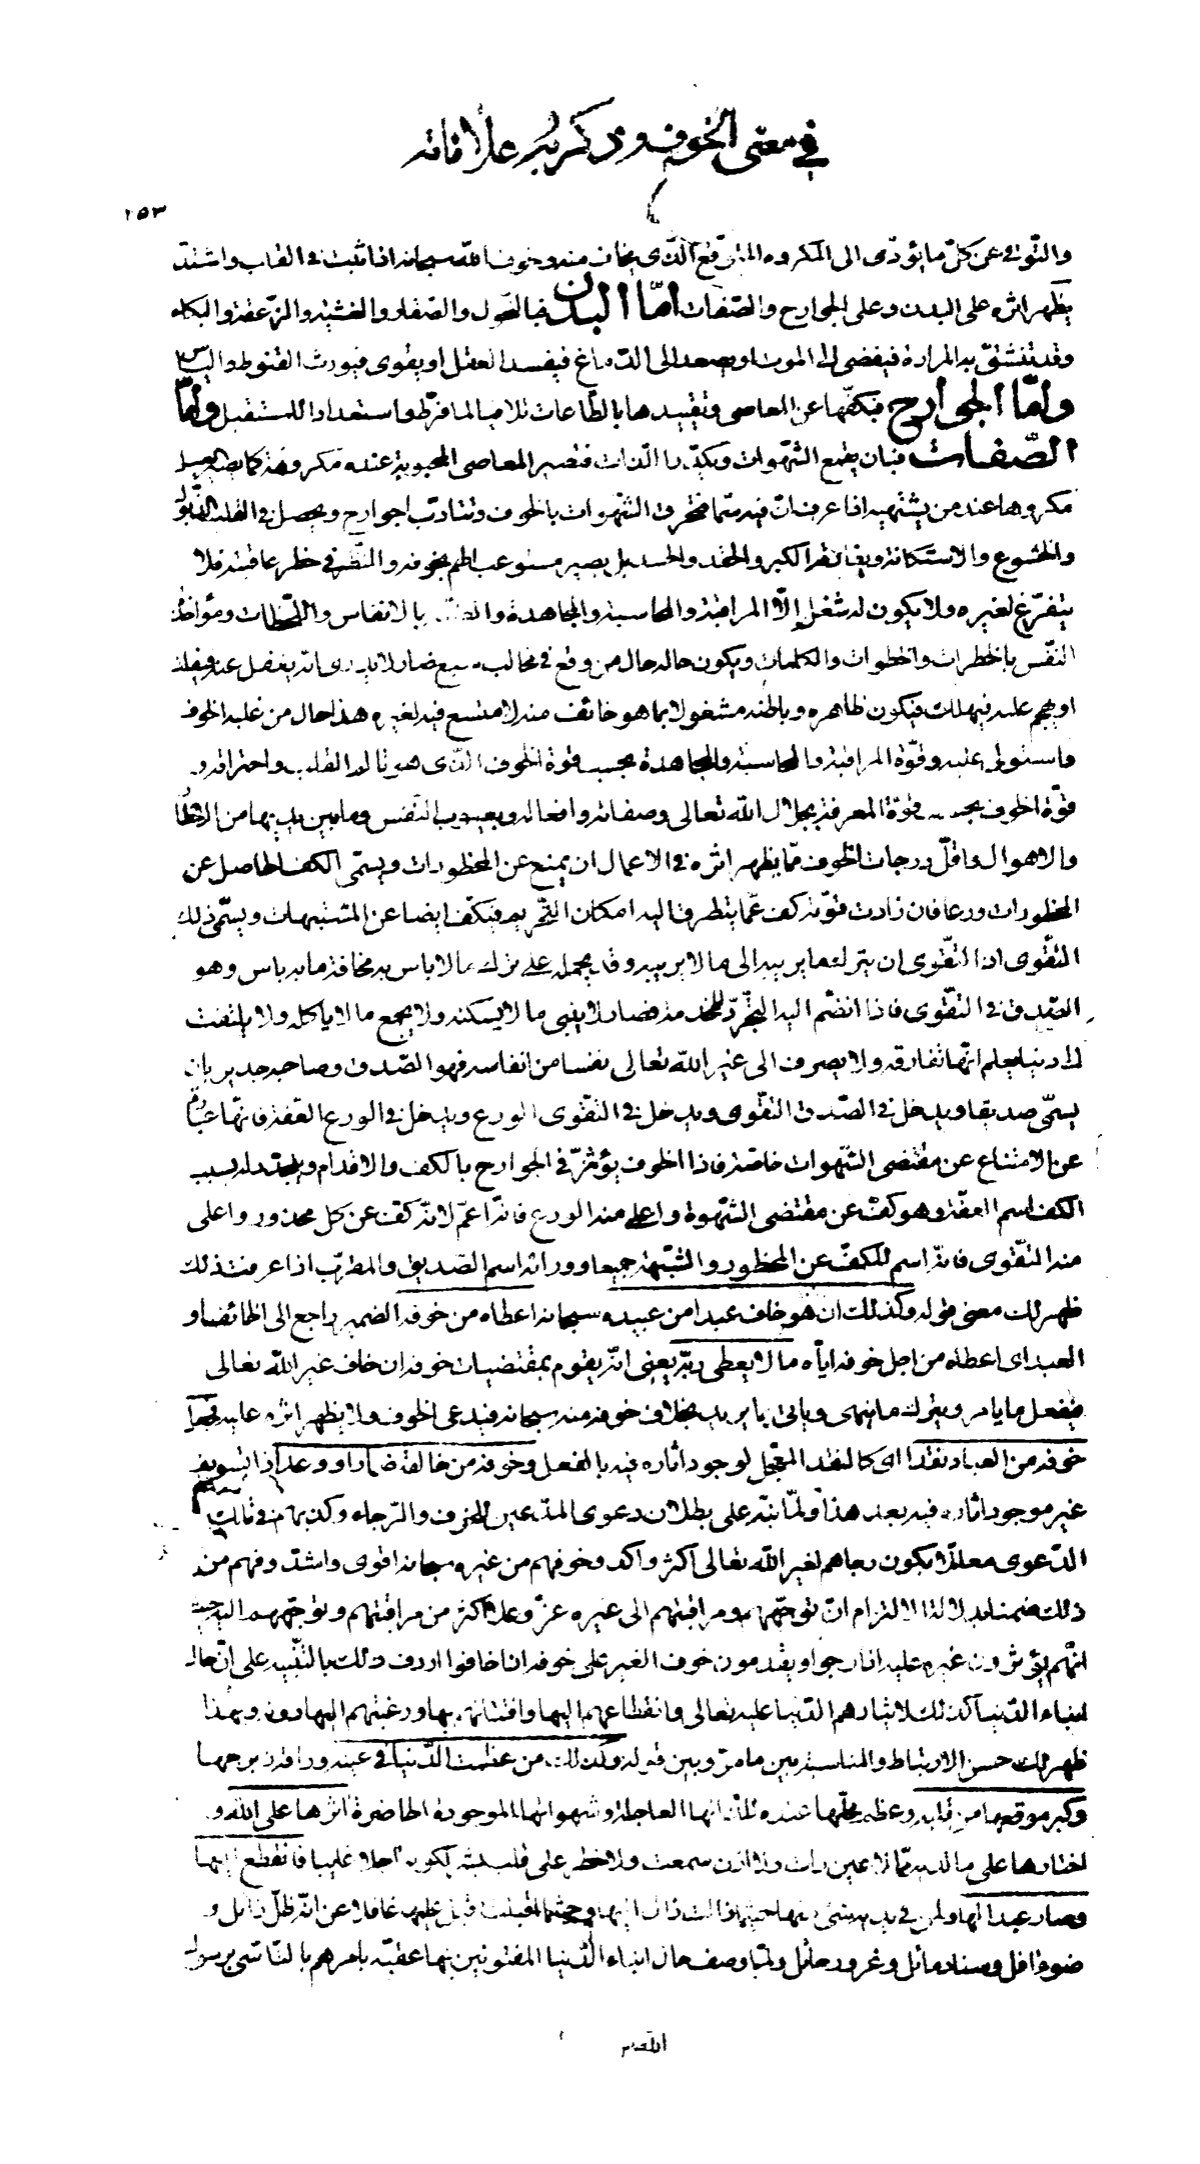 في معنى الخوف وذكر علاماته
١٥٣
والتّوقى عن كلّ ما يؤدّى الى المكروه المتوقّع الّذى يخاف منه وخوف الله سبحانه اذا ثبت فى القلب واشتدّ
يظهر اثره على البدن وعلى الجوارح والصّفات امّا البدن فبالنّحول والصّفار والغشية والزّعقة والبكاء
وقد تنشقّ به المرارة فيفضى الى الموت او يصعد الى الدّماغ فيفسد العقل او يقوى فيورث القنوط واليأس
وامّا الجوارح فبكفّها عن المعاصى وتقييدها بالطّاعات تلافيا لما فرّط واستعدادا للمستقبل وامّا
الصّفات فبان يقمع الشّهوات ويكدّر اللّذات فتصير المعاصى المحبوبة عنده مكروهة كما يصير العسل
مكروها عند من يشتهيه اذا عرف انّ فيه سمّا فتحرق الشّهوات بالخوف وتتأدّب الجوارح ويحصل فى القلب الذّبول
والخشوع والاستكانة ويفارقه الكبر والحقد والحسد بل يصير مستوعب الهم بخوفه والنّظر فى خطر عاقبته فلا
يتفرّغ لغيره ولا يكون له شغل الّا المراقبة والمحاسبة والمجاهدة والضنّة بالانفاس واللّحظات ومؤاخذة
النّفس بالخطرات والخطوات والكلمات ويكون حاله حال من وقع فى مخالب سبع ضار لا يدرى انه يغفل عنه فيفلت
او يهجم عليه فيهلك فيكون ظاهره وباطنه مشغولا بما هو خائف منه لا متّسع فيه لغيره هذا حال من غلبه الخوف
واستولى عليه وقوّة المراقبة والمحاسبة والمجاهدة بحسب قوّة الخوف الّذى هو تألم القلب واحتراقه و
قوّة الخوف بحسب قوّة المعرفة بجلال الله تعالى وصفاته وافعاله وبعيوب النّفس وما بين يديها من الاخطار
والاهوال واقلّ درجات الخوف ممّا يظهر اثره فى الاعمال ان يمنع عن المحظورات ويسمّى الكفّ الحاصل عن
المحظورات ورعا فان زادت قوّته كفّ عمّا يتطرق اليه امكان التّحريم فيكفّ ايضا عن المشتبهات ويسمّى ذلك
التّقوى اذ التّقوى ان يترك ما يريبه الى ما لا يريبه وقد يحمله على ترك ما لا باس به مخافة ما به باس وهو
الصّدق فى التّقوى فاذا انضمّ اليه التّجرّد للخدمة فصار لا يبنى ما لا يسكنه ولا يجمع ما لا ياكله ولا يلتفت
الى دنيا يعلم انّها تفارقه ولا يصرف الى غير الله تعالى نفسا من انفاسه فهو الصّدق وصاحبه جدير بان
يسمّى صديقا ويدخل فى الصّدق التّقوى ويدخل فى التّقوى الورع ويدخل فى الورع العفّة فانّها عبارة
عن الامتناع عن مقتضى الشّهوات خاصّة فاذا الخوف يؤثّر فى الجوارح بالكفّ والاقدام ويتجدّد له بسبب
الكفّ اسم العفّة وهو كفّ عن مقتضى الشّهوة واعلى منه الورع فانّه اعمّ لانّه كفّ عن كل محذور واعلى
منه التّقوى فانّه اسم للكفّ عن المحظور والشّبهة جميعا ووراءه اسم الصّديق والمقرّب اذا عرفت ذلك
ظهر لك معنى قوله وكذلك ان هو خاف عبدا من عبيده سبحانه اعطاه من خوفه الضمير راجع الى الخائف او
العبد اى اعطاه من اجل خوفه ايّاه ما لا يعطى ربّه يعنى انّه يقوم بمقتضيات خوفه ان خاف غير الله تعالى
فيفعل ما يامر ويترك ما ينهى وياتى بما يريد بخلاف خوفه منه سبحانه فيدعى الخوف ولا يظهر اثره عليه فجعل
خوفه من العباد نقدا اى كالنقد المعجّل لوجود اثاره فيه بالفعل وخوفه من خالقه ضمارا ووعدا ذا تسويف
غير موجود اثاره فيه بعد هذا ولمّا نبّه على بطلان دعوى المدّعين للخوف والرّجاء وكذبهم فى تلك
الدّعوى معلّلا بكون رجاهم لغير الله تعالى اكثر واكد وخوفهم من غيره سبحانه اقوى واشدّ وفهم من
ذلك ضمنا بدلالة الالتزام انّ توجّههم ومراقبتهم الى غيره عزّ وعلا اكثر من مراقبتهم وتوجّههم اليه حيث
انّهم يؤثرون غيره عليه اذا رجوا ويقدمون خوف الغير على خوفه اذا خافوا اردف ذلك بالتّنبيه على انّ حال
ابناء الدّنيا كذلك لايثارهم الدّنيا عليه تعالى وانقطاعهم اليها وافتتانهم بها ورغبتهم اليها دونه وبهذا
ظهر لك حسن الارتباط والمناسبة بين ما مرّ وبين قوله وكذلك من عظمت الدّنيا فى عينه وراقه زبرجها
وكبر موقعها من قلبه وعظم محلّها عنده للذّاتها العاجلة وشهواتها الموجودة الحاضرة اثرها على الله و
اختارها على ما لديه ممّا لا عين رات ولا اذن سمعت ولا خطر على قلب بشر لكونه آجلا غايبا فانقطع اليها
وصار عبدا لها ولمن فى يديه شىء منها حيثما زالت زال اليها وحيثما اقبلت اقبل عليها غافلا عن انّه ظلّ زائل و
ضوء افل وسناد مائل وغرور حائل ولمّا وصف حال ابناء الدّنيا المفتونين بها عقبّه بامرهم بالتّاسّى برسول
الله ص